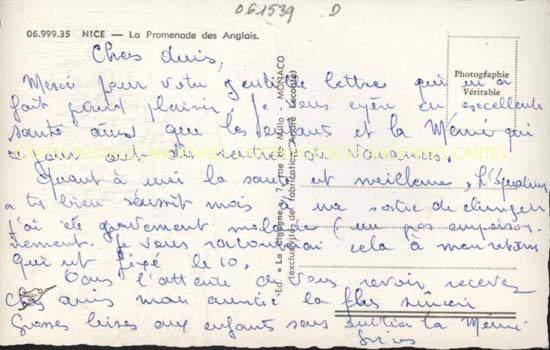 061539 D
06.999.35 NICE — La Promenade des Anglais.
Chers amis,
Merci pour votre gentille lettre qui m'a
fait grand plaisir, je vous espère en excellente
santé ainsi que les enfants et la Mémé qui
ont du rentrer de vacances.
Quant à moi la santé est meilleure, l'opération
a très bien réussit mais
j'ai été gravement malade (un gros
Je vous raconterai cela à mon retour
qui est fixé le 10.
Dans l'attente de vous revoir, recevez
Chers amis mon amitié la plus sincère
Grosses bises aux enfants sans oublier la Mémé
Photographie
Véritable
Éd. « La Cigogne », 7, rue Millo - MONACO
(exclusivités de fabrication André Leconte)